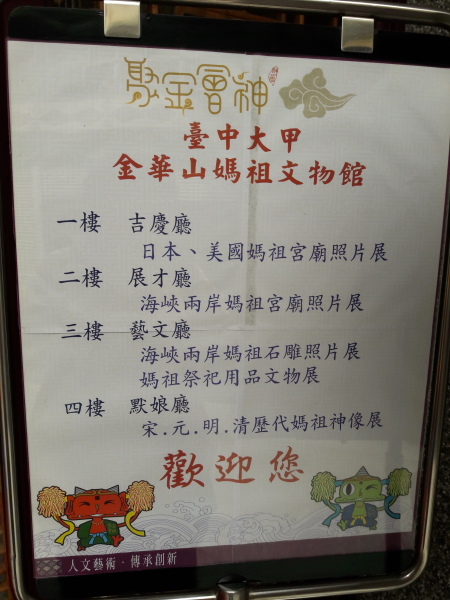 聚金會神
臺中大甲
金華山媽祖文物館
一樓 吉慶廳
日本、美國媽祖宮廟照片展
二樓 展才廳
海峽兩岸媽祖宮廟照片展
三樓 藝文廳
海峽兩岸媽祖石雕照片展
媽祖祭祀用品文物展
四樓 默娘廳
宋.元.明.清歷代媽祖神像展
歡迎您
人文藝術·傳承創新